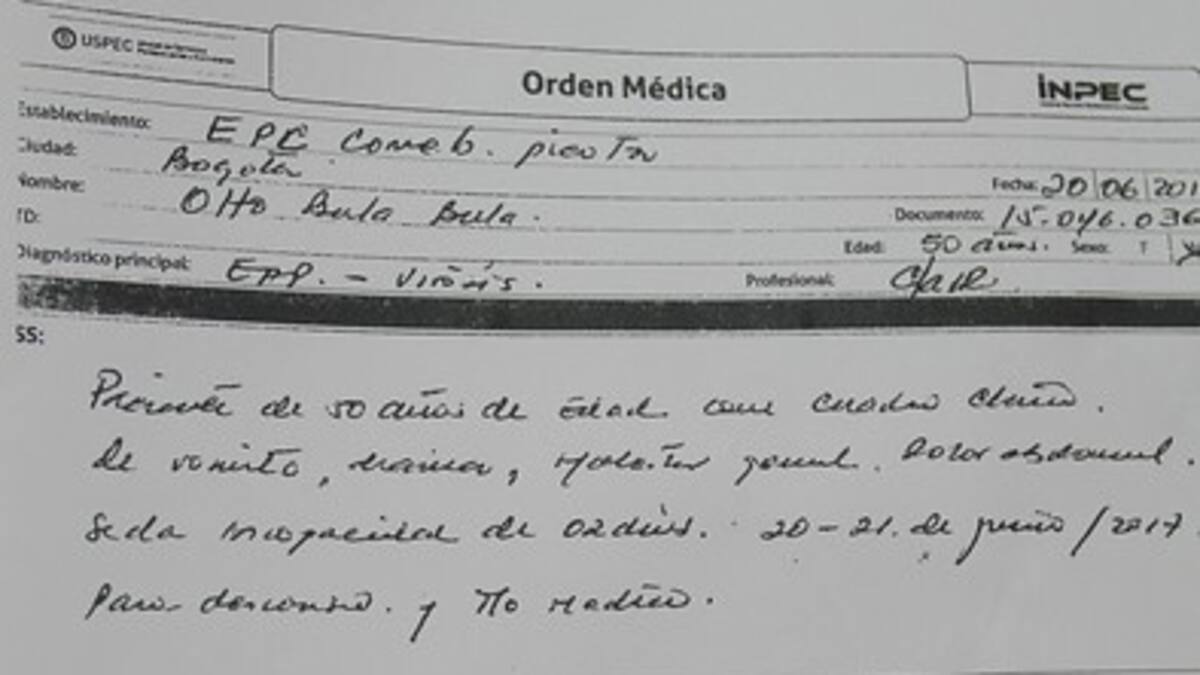 USPEC
Orden Médica
INPEC
Establecimiento: EPC Comeb. picota
Ciudad: Bogotá
Fecha: 20 06 201
Nombre: Otto Bula Bula.
Documento: 15.046.036
TD:
Edad: 50 años. Sexo:
Diagnóstico principal: EPP. - virosis.
Profesional:
SS:
Paciente de 50 años de edad con cuadro clínico.
de vomito, diarrea, Malestar general. Dolor abdominal.
Se da incapacidad de 02 días. 20-21. de junio/2017
para descanso. y tto medico.